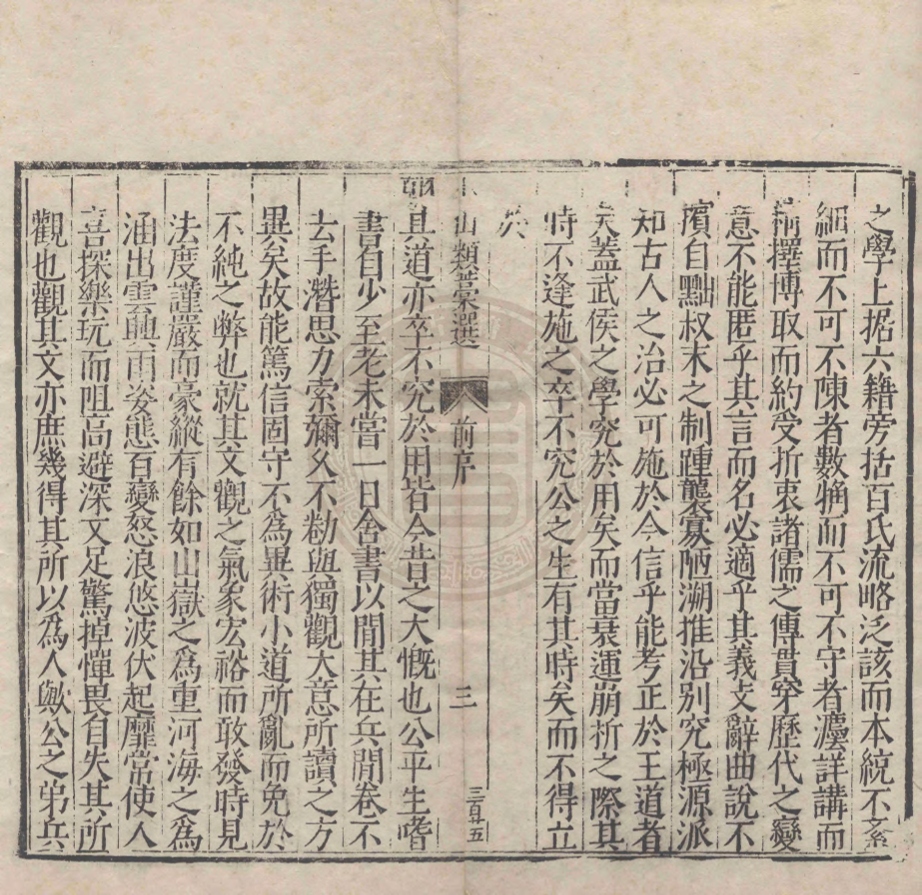 之學上据六籍旁括百氏流略泛該而本統不紊
細而不可不陳者數觕而不可不守者灋詳講而
精擇博取而約受折衷諸儒之傳貫穿歷代之變
意不能匿乎其言而名必適乎其義攴辭曲說不
擯自黜叔末之制踵襲寡陋溯推沿別究極源派
知古人之治必可施於今信乎能考正於王道者
矣蓋武侯之學究於用矣而當衰運崩析之際其
時不逢施之卒不究公之生有其時矣而不得立
山類藁選
前序
三
三百五
其道亦卒不究於用皆今昔之大慨也公平生嗜
書自少至老未嘗一日舍書以閒其在兵閒卷不
去手潛思力索彌久不勌與獨觀大意所讀之方
異矣故能篤信固守不為異術小道所亂而免於
不純之弊也就其文觀之氣象宏裕而敢發時見
法度謹嚴而豪縱有餘如山嶽之為重河海之為
涵出雲興雨姿態百變怒浪悠波伏起靡常使人
喜探樂玩而阻高避深又足驚掉憚畏自失其所
觀也觀其文亦庶幾得其所以為人歟公之弟兵